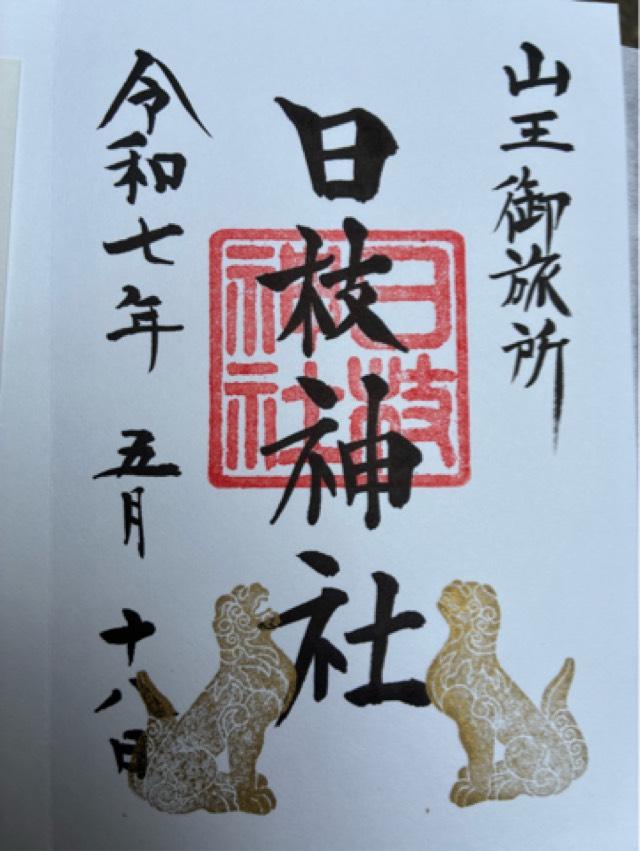 山王御旅所
日枝神社
日枝
神社
令和七年 五月 十八日